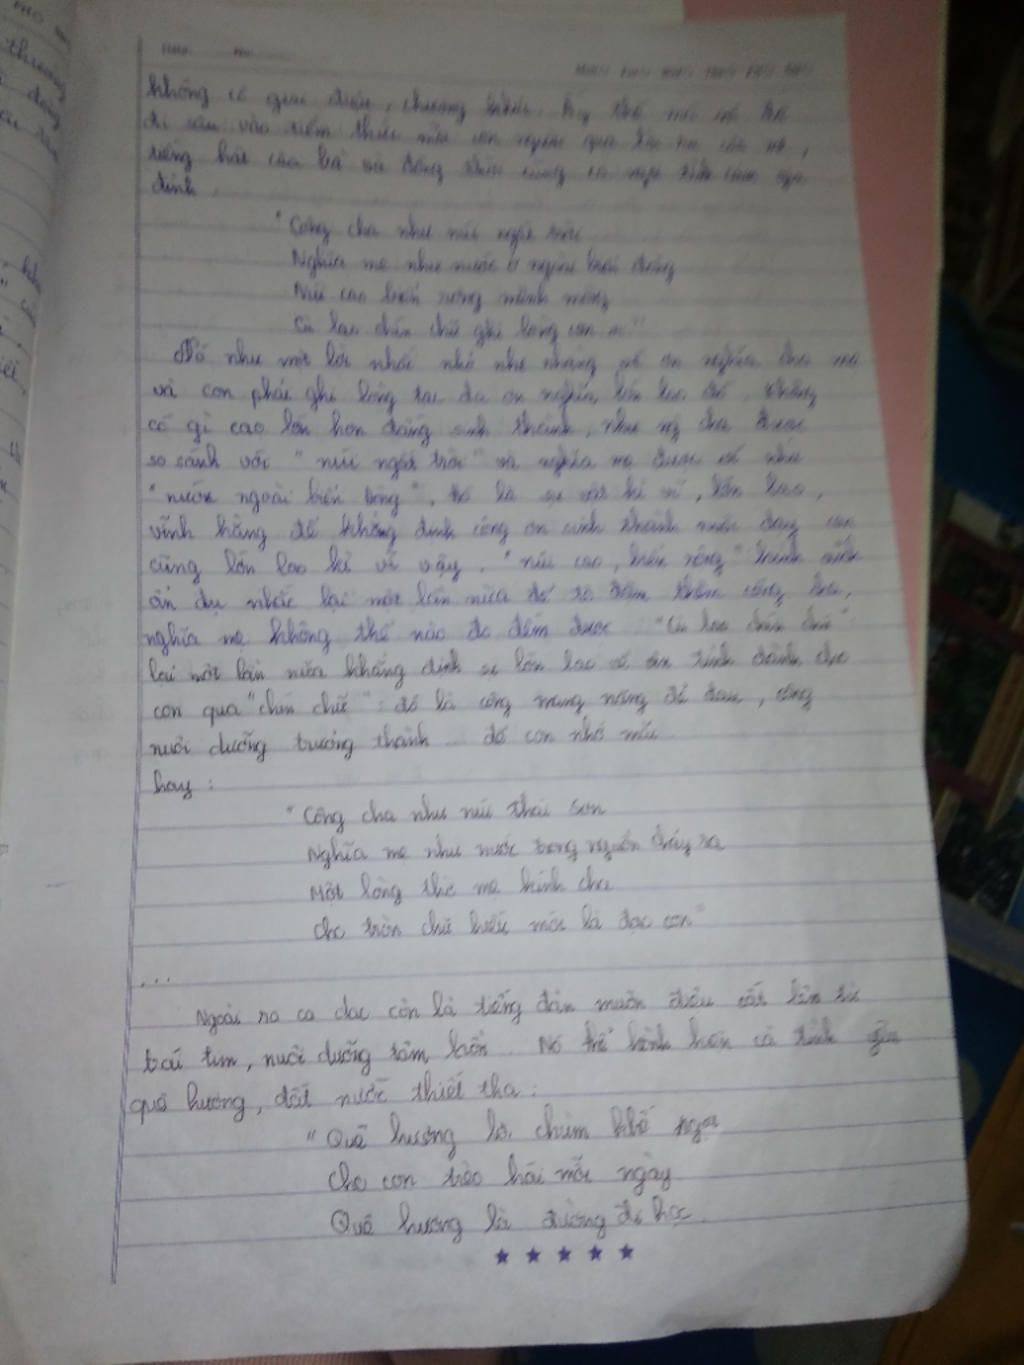 không có giai điệu, chương khúc
đi sâu vào tiềm thức mỗi con người qua
tiếng hát của bà và
đình.
" Công cha như núi ngất trời
Nghĩa mẹ như nước ở ngoài biển đông
Núi cao biển rộng mênh mông
Cù lao chín chữ ghi lòng con ơi "
Đó như một lời nhắc nhở nhẹ nhàng về ơn nghĩa cha mẹ
và con phải ghi lòng tạc dạ ơn nghĩa lớn lao đó. Không
có gì cao lớn hơn đấng sinh thành, cha được
so sánh với " núi ngất trời " và nghĩa mẹ được ví như
" nước ngoài biển đông ", đó là sự vật kì vĩ, lớn lao,
vĩnh hằng để khẳng định công ơn sinh thành con
cũng lớn lao kì vĩ vậy. " núi cao, biển rộng " hình ảnh
ẩn dụ nhắc lại một lần nữa để tô đậm thêm công cha,
nghĩa mẹ không thể nào đo đếm được. " Cù lao chín chữ "
lại một lần nữa khẳng định sự lớn lao về ân tình dành cho
con qua " chín chữ " : đó là công mang nặng đẻ đau, công
nuôi dưỡng trưởng thành ... để con nhớ mãi
hay :
" Công cha như núi thái sơn
Nghĩa mẹ như nước trong nguồn chảy ra
Một lòng thờ mẹ kính cha
Cho tròn chữ hiếu mới là đạo con "
...
Ngoài ra ca dao còn là tiếng đàn muôn điệu cất lên từ
trái tim, nuôi dưỡng tâm hồn. Nó thể hiện hơn cả tình yêu
quê hương, đất nước thiết tha :
" Quê hương là chùm khế ngọt
Cho con trèo hái mỗi ngày
Quê hương là đường đi học.
★ ★ ★ ★ ★